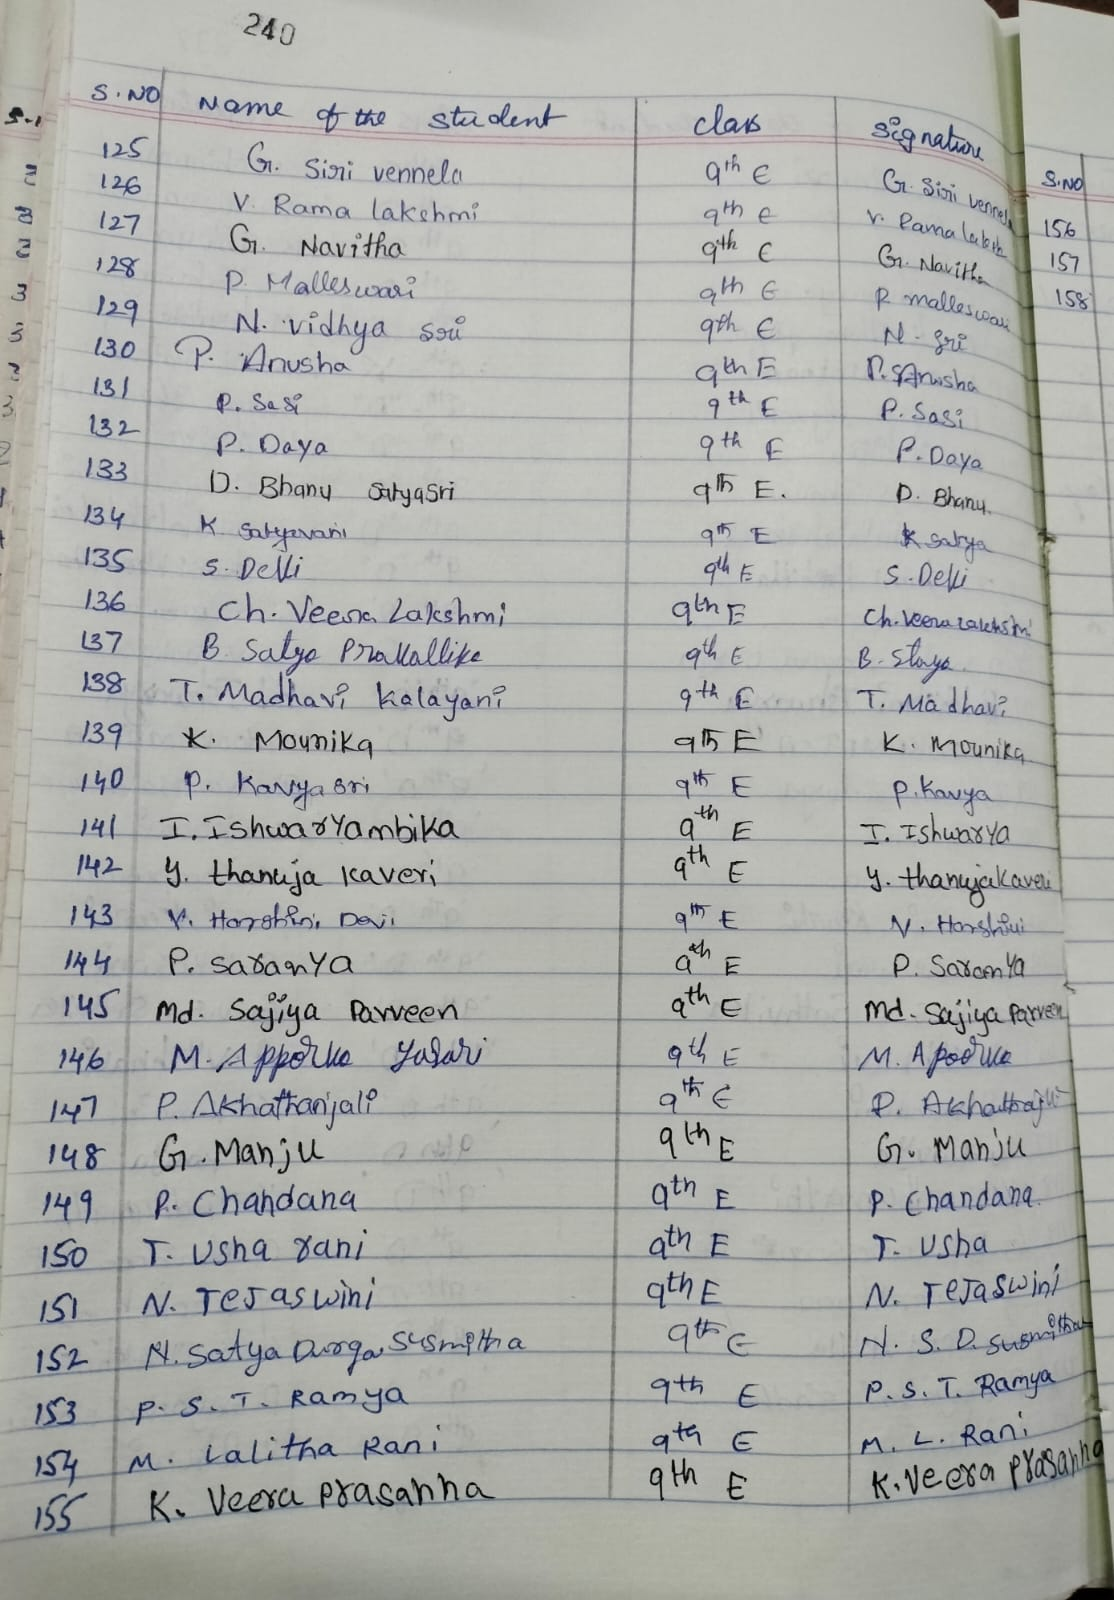 240
S.NO Name of the student class signature
125 G. Siri vennela 9th E G. Siri vennel
126 V. Rama lakshmi 9th E V. Rama laksh
127 G. Navitha 9th E G. Navitha
128 P. Malleswari 9th E P malleswari
129 N. vidhya sri 9th E N. sri
130 P. Anusha 9th E P. Anusha
131 P. Sasi 9th E P. Sasi
132 P. Daya 9th E P. Daya
133 D. Bhanu SatyaSri 9th E. D. Bhanu.
134 K Satyavani 9th E K satya
135 S. Delli 9th E S. Delli
136 Ch. Veera Lakshmi 9th E Ch. Veera Lakshmi
137 B. Satya Prakallika 9th E B. Staya
138 T. Madhavi Kalayani 9th E T. Madhavi
139 K. Mounika 9th E K. Mounika
140 P. Kavya sri 9th E P. Kavya
141 I. IshwarYambika 9th E I. IshwarYa
142 Y. thanuja kaveri 9th E Y. thanuja Kaveri
143 V. Harshini Devi 9th E V. Harshini
144 P. SaranYa 9th E P. SaranYa
145 Md. Sajiya Parveen 9th E Md. Sajiya Parveen
146 M. 9th E M.
147 P. Akhathanjali 9th E P.
148 G. Manju 9th E G. Manju
149 P. Chandana 9th E P. Chandana.
150 T. Usha rani 9th E T. Usha
151 N. Tejaswini 9th E N. Tejaswini
152 N. Satya Durga Susmitha 9th E N. S. D. Susmitha
153 P. S. T. Ramya 9th E P. S. T. Ramya
154 M. Lalitha Rani 9th E M. L. Rani
155 K. Veera Prasanna 9th E K. Veera Prasanna
S.NO
156
157
158